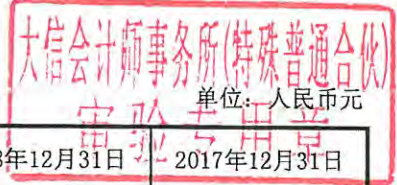 大信会计师事务所(特殊普通合伙)
单位：人民币元
审验专用章
8年12月31日 2017年12月31日